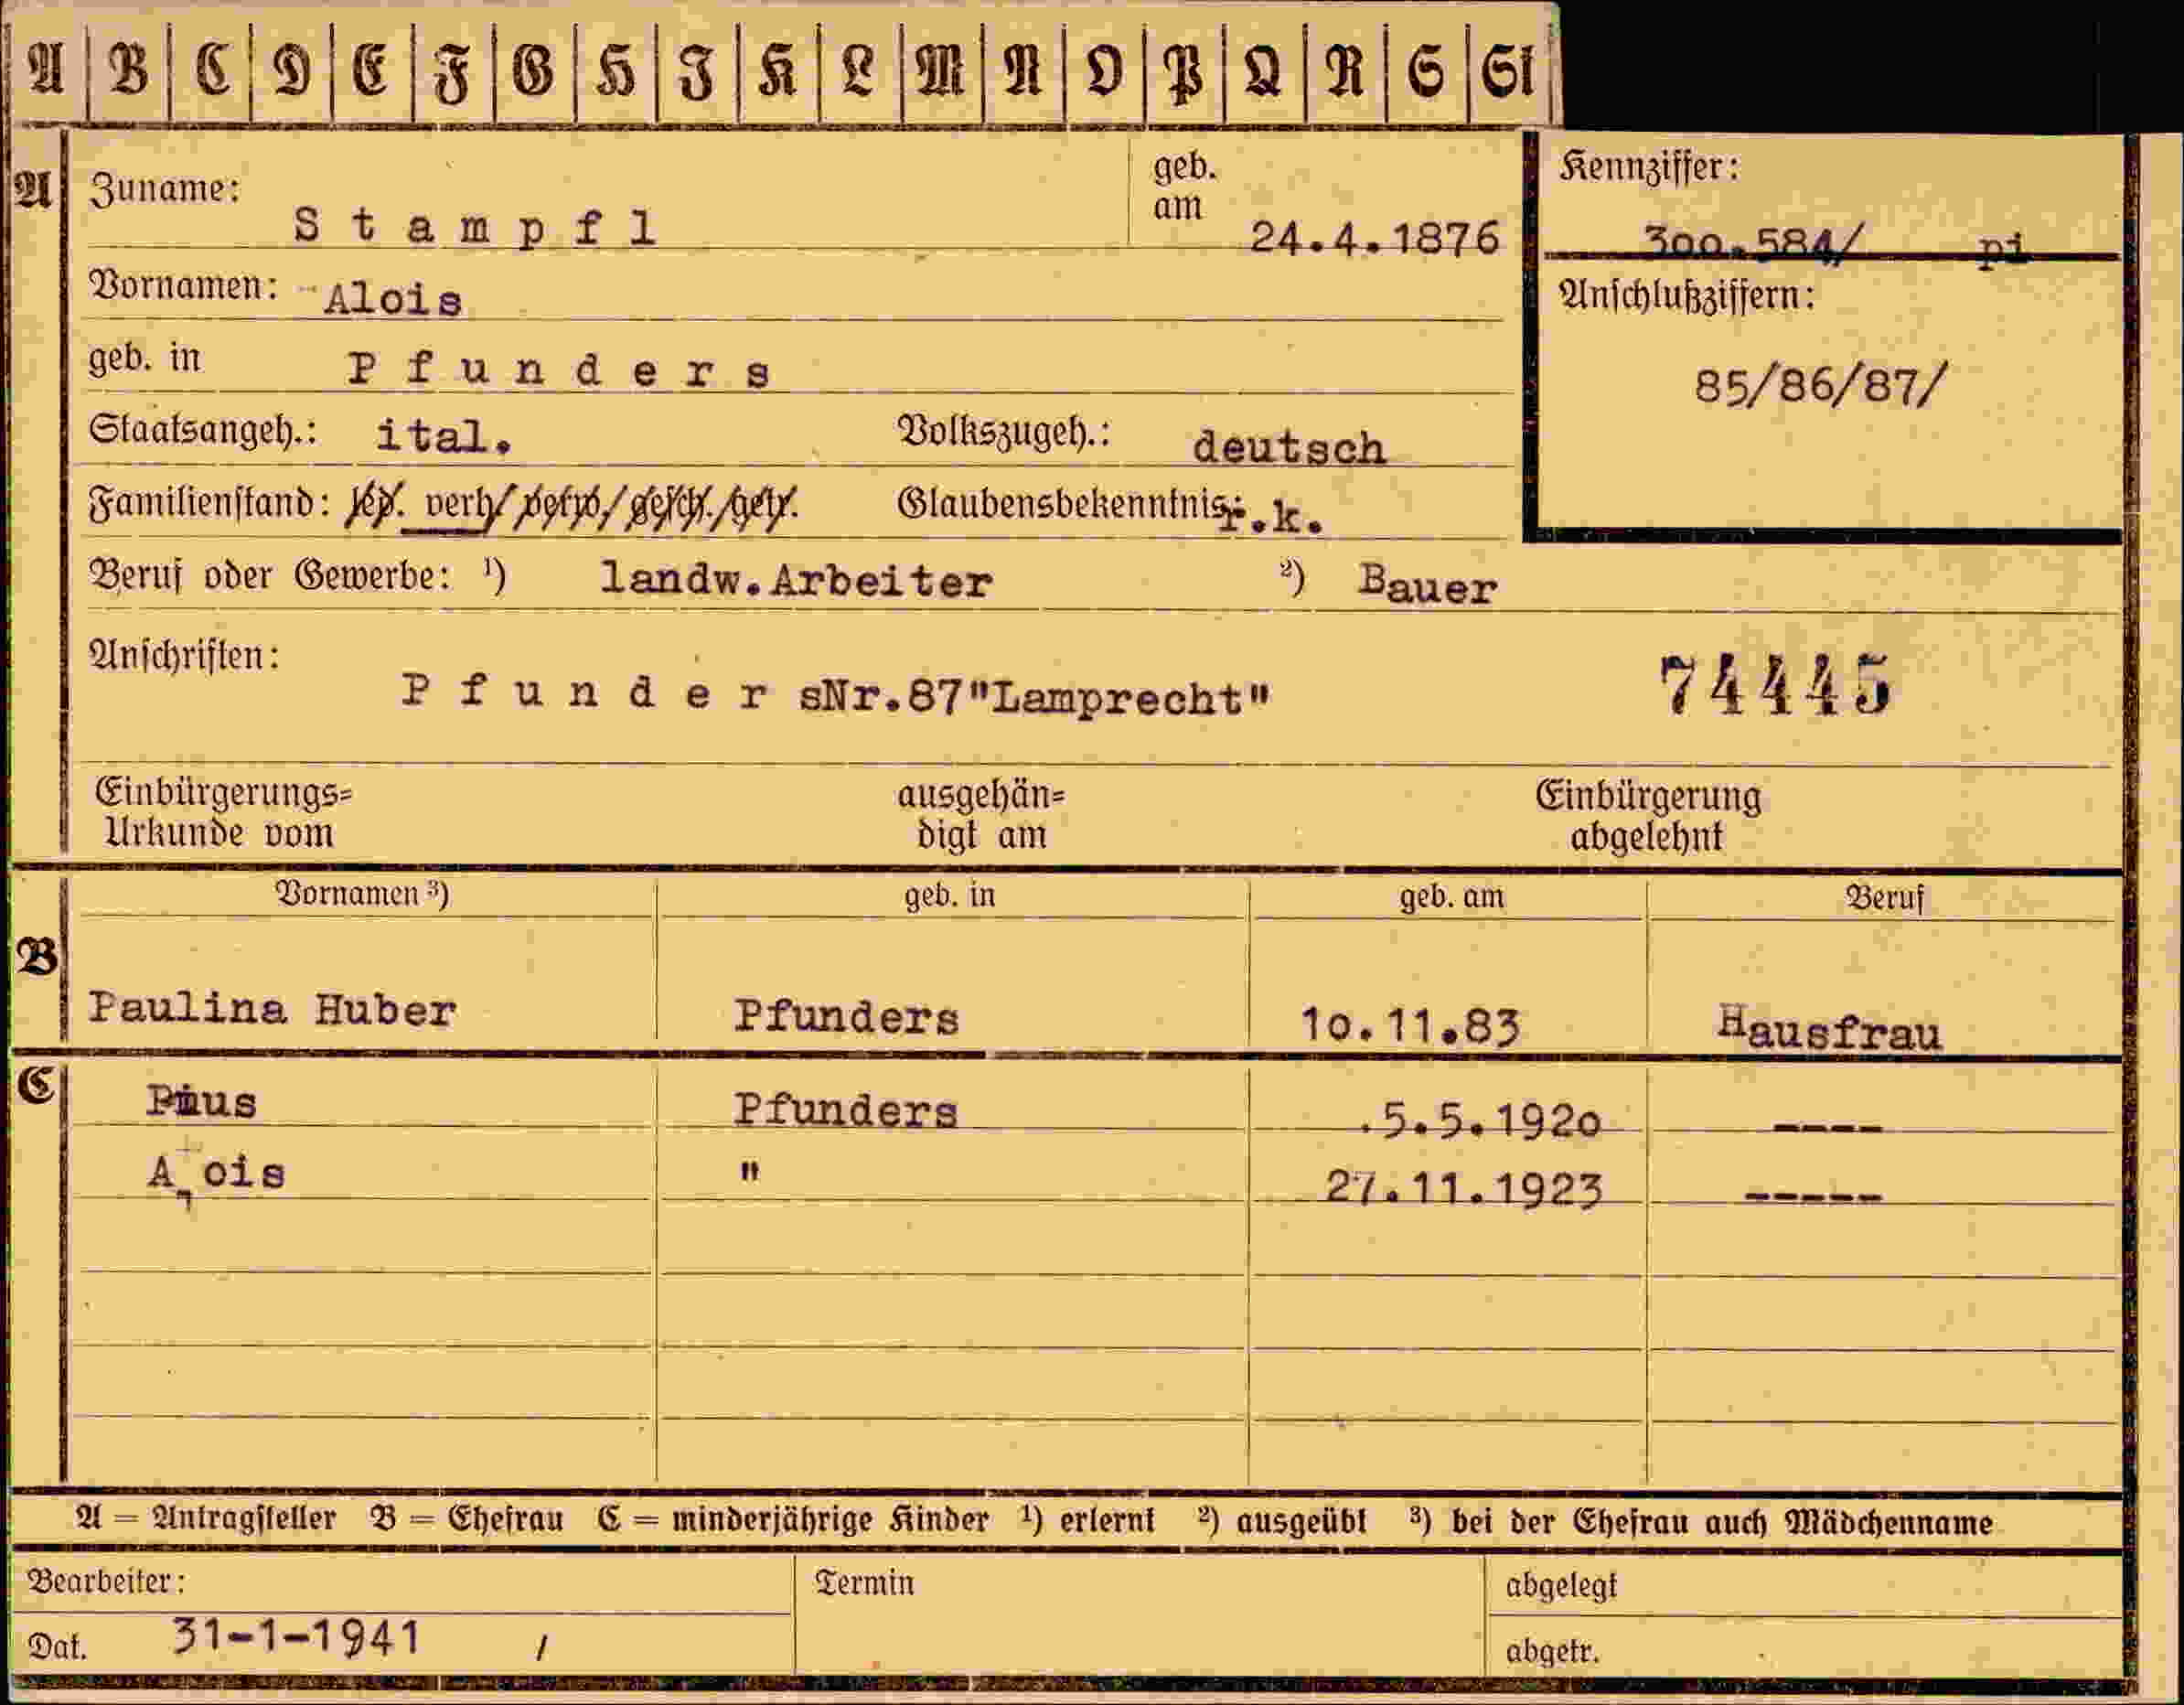 A B C D E F G H J K L M N O P Q R S St
A Zuname: Stampfl geb. am 24.4.1876 Kennziffer: 300.584/ pi
Vornamen: Alois Anschlußziffern:
geb. in Pfunders 85/86/87/
Staatsangeh.: ital. Volkszugeh.: deutsch
Familienstand: led. verh/ verw/ gesch./getr. Glaubensbekenntnis: r.k.
Beruf oder Gewerbe: ¹) landw.Arbeiter ²) Bauer
Anschriften: PfundersNr.87"Lamprecht" 74445
Einbürgerungs= ausgehän= Einbürgerung
Urkunde vom digt am abgelehnt
Vornamen ³) geb. in geb. am Beruf
B Paulina Huber Pfunders 10.11.83 Hausfrau
C Pius Pfunders .5.5.1920 ----
Alois " 27.11.1923 -----
A = Antragsteller B = Ehefrau C = minderjährige Kinder ¹) erlernt ²) ausgeübt ³) bei der Ehefrau auch Mädchenname
Bearbeiter: Termin abgelegt
Dat. 31-1-1941 / abgetr.